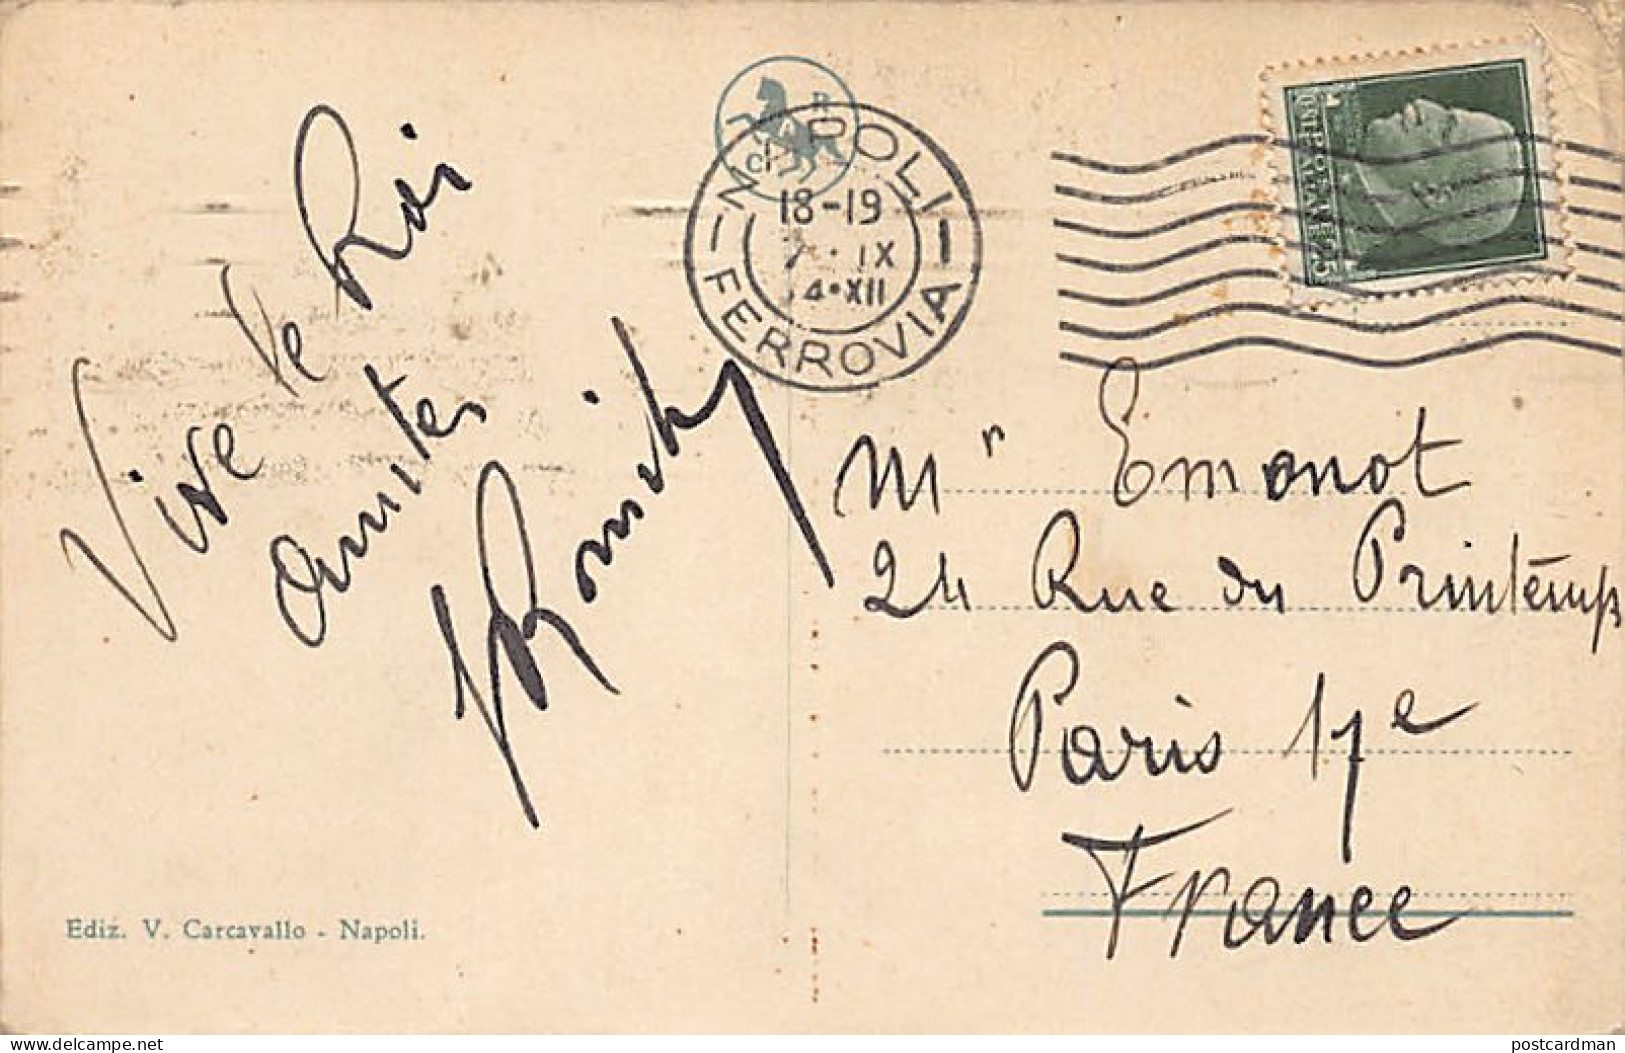 Vive le Roi
amitiés
NAPOLI
FERROVIA
18-19
IX
4•XII
R
C
POSTE ITALIANE
Mr Emonot
24 Rue du Printemps
Paris 17e
France
Ediz. V. Carcavallo - Napoli.
delcampe.net
postcardman